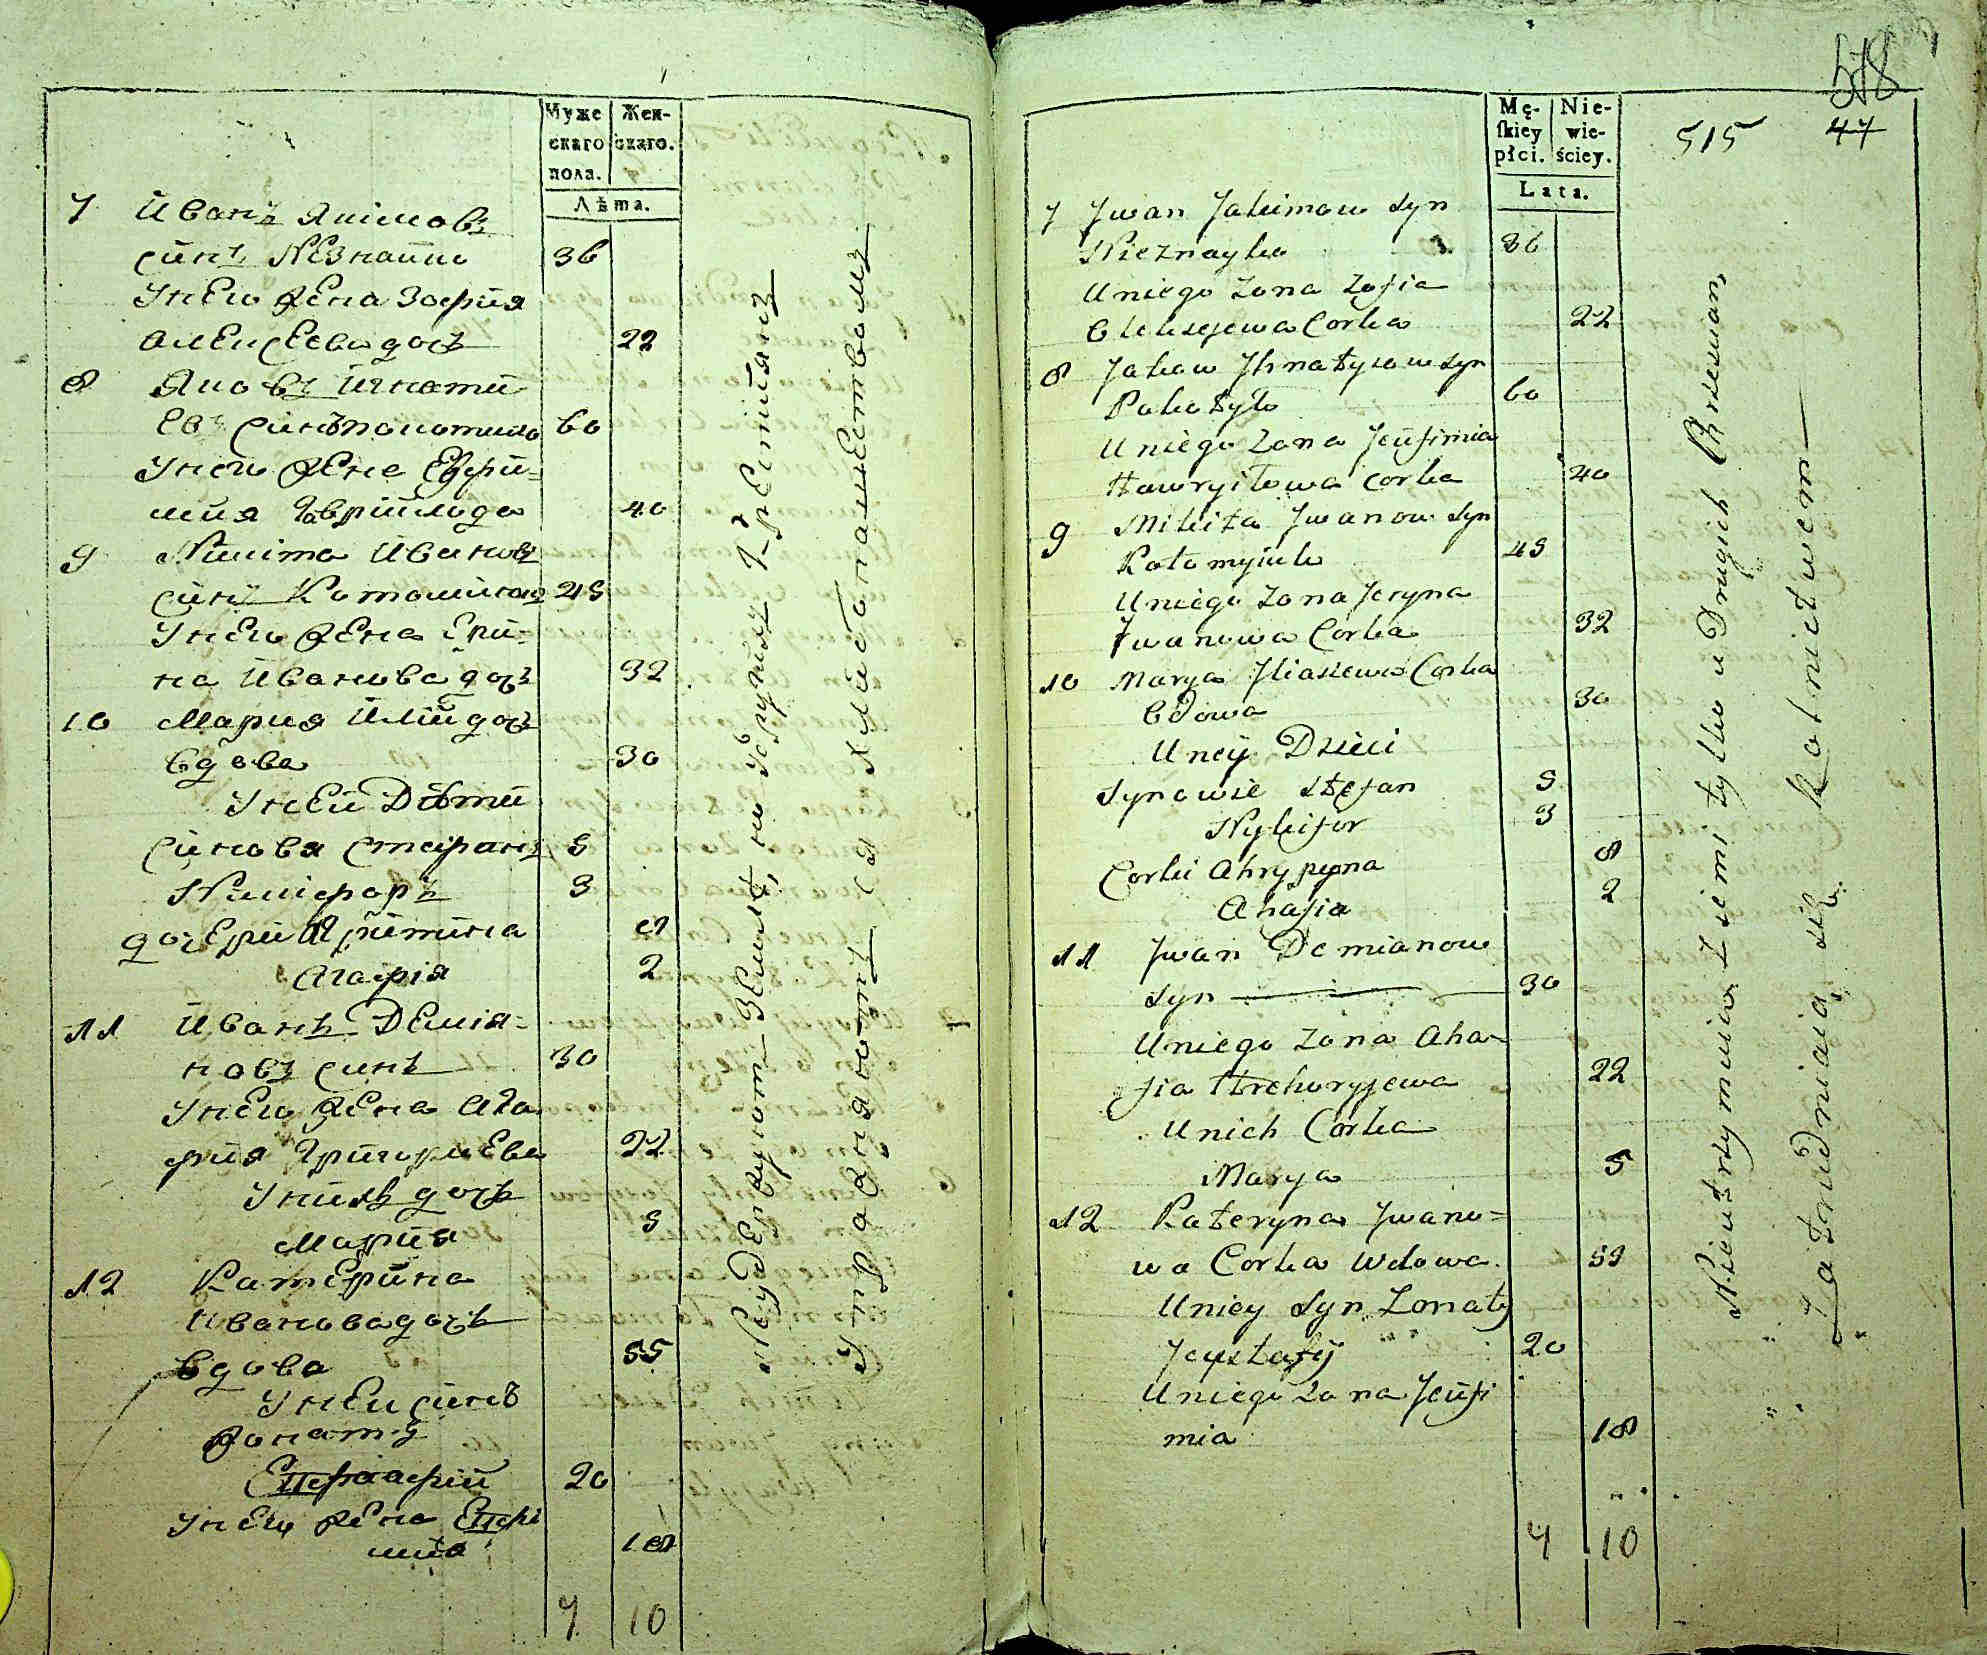 Муже
скаго
пола.
Жен-
скаго.
Лѣта.
7 Иванъ Якимовъ
синъ Незнайко 36
У него жена Зофия
Алексеева дочь 22
8 Яковъ Игнати
евъ синъ Покотило 60
У него жена Евфи-
мия Гаврийло до 40
9 Никита Ивановъ
синъ Котомийкъ 45
У него жена Ери-
на Иванова дочь 32
10 Мария Илии дочь
вдова 30
У неи Дѣти
синовя Стефанъ 5
Никифоръ 3
дочери 8
Агафiя 2
11 Иванъ Демiя-
новъ синъ 30
У него жена Ага
фия Григорьева 22
У нихъ дочь
Мария 5
12 Катерина
Иванова дочь
вдова 55
У неи синъ
жонатъ
20
У него жена
мия 18
7 10
Неудержуют Земли, но Уқругихъ Крестиянъ
Упражняютъ ся Хлебопашествомъ
578
515 47
Mę-
skiey
płci.
Nie-
wie-
ściey.
Lata.
7 Jwan Jakimow syn
Nieznayko 36
Uniego Zona Zofia
Oleksejewa Corka 22
8 Jakow Jhnatyiow syn
Pokotyło 60
Uniego Zona Jeufimia
Hawryiłowa Corka 40
9 Mikita Jwanow syn
Kotomyiuk 45
Uniego Zona Jeryna
Jwanowa Corka 32
10 Marya Jliaszewa Corka
Wdowa 30
Uney Dzieci
Synowie Stefan 5
Nykifor 3
Corki Ahrypyna 8
Ahafia 2
11 Jwan Demianow
syn 30
Uniego Zona Aha-
fia Hrehoryjewa 22
Unich Corka
Marya 5
12 Kateryna Jwano-
wa Corka Wdowa 55
Uniey syn Zonaty
Jeustafij 20
Uniego Zona Jeufi
mia 18
7 10
Nieutrzymuia Ziemi tylko u Drugich Krzescian,
Zatrudniaia się Rolnictwem